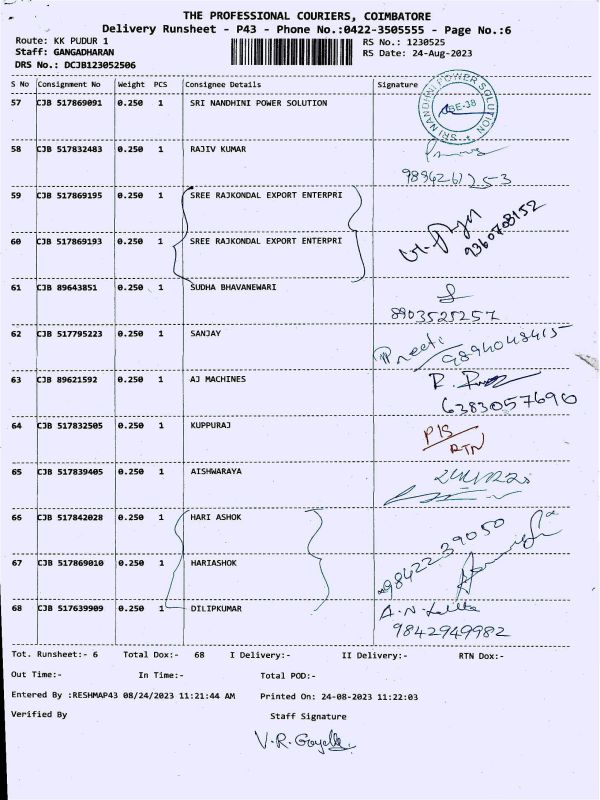 THE PROFESSIONAL COURIERS, COIMBATORE
Delivery Runsheet - P43 - Phone No.:0422-3505555 - Page No.:6
Route: KK PUDUR 1 RS No.: 1230525
Staff: GANGADHARAN RS Date: 24-Aug-2023
DRS No.: DCJB123052506
S No Consignment No Weight PCS Consignee Details Signature
57 CJB 517869091 0.250 1 SRI NANDHINI POWER SOLUTION
SRI NANDHINI POWER SOLUTION
CBE-38
58 CJB 517832483 0.250 1 RAJIV KUMAR
9894261253
59 CJB 517869195 0.250 1 SREE RAJKONDAL EXPORT ENTERPRI
60 CJB 517869193 0.250 1 SREE RAJKONDAL EXPORT ENTERPRI
9360708152
61 CJB 89643851 0.250 1 SUDHA BHAVANEWARI
8903525257
62 CJB 517795223 0.250 1 SANJAY
Preeti 9894048415
63 CJB 89621592 0.250 1 AJ MACHINES
6383057690
64 CJB 517832505 0.250 1 KUPPURAJ
P/S
RTN
65 CJB 517839405 0.250 1 AISHWARAYA
66 CJB 517842028 0.250 1 HARI ASHOK
67 CJB 517869010 0.250 1 HARIASHOK
9842239050
68 CJB 517639909 0.250 1 DILIPKUMAR
A.N. Lalitha
9842949982
Tot. Runsheet:- 6 Total Dox:- 68 I Delivery:- II Delivery:- RTN Dox:-
Out Time:- In Time:- Total POD:-
Entered By :RESHMAP43 08/24/2023 11:21:44 AM Printed On: 24-08-2023 11:22:03
Verified By Staff Signature